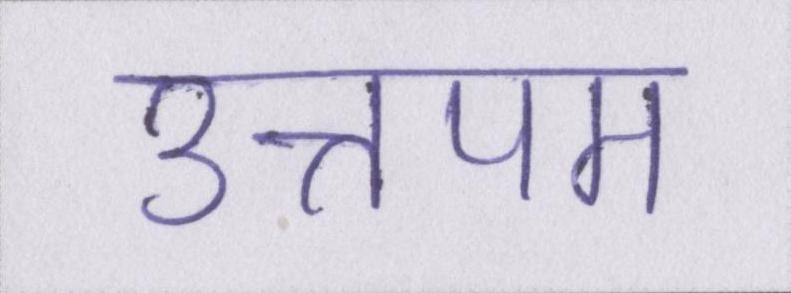 उत्तपम